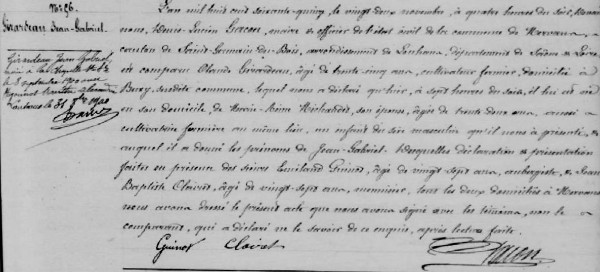 N° 96.
Girardeau Jean-Gabriel.
L'an mil huit cent soixante-quinze, le vingt deux novembre, à quatre heures du soir, devant
nous, Denis Lucien Garcon, maire et officier de l'état civil de la commune de Mervans
canton de Saint-Germain-du-Bois, arrondissement de Louhans, département de Saône-et-Loire,
est comparu Claude Girardeau, âgé de trente cinq ans, cultivateur fermier, domicilié à
susdite commune, lequel nous a déclaré qu'hier, à sept heures du soir, il lui est né
en son domicile, de son épouse, âgée de trente deux ans, aussi
cultivatrice fermière au même lieu, un enfant du sexe masculin qu'il nous a présenté &
auquel il a donné les prénoms de Jean-Gabriel. Lesquelles déclaration & présentation
faites en présence des sieurs Emiland Guinot, âgé de vingt sept ans, aubergiste, & Jean
Baptiste Clairet, âgé de vingt-sept ans, menuisier, tous les deux domiciliés à Mervans
nous avons dressé le présent acte que nous avons signé avec les témoins, non le
comparant, qui a déclaré ne le savoir de ce enquis, après lecture faite.
Guinot Clairet